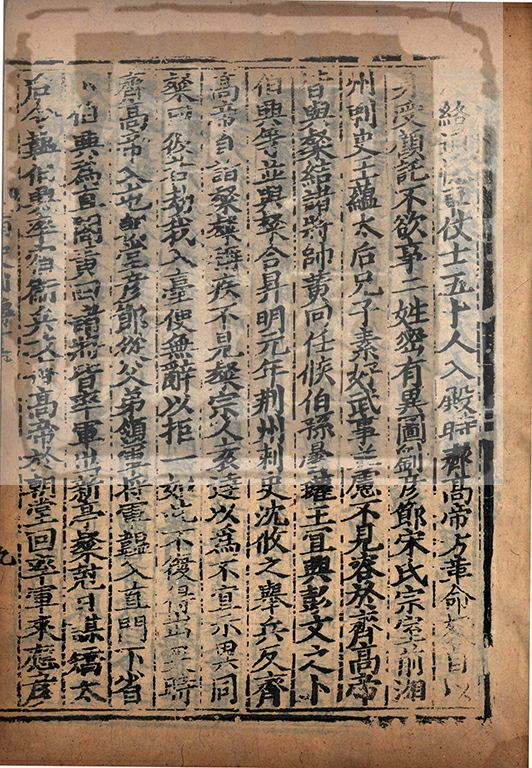 絡通幰車仗士五十人入殿時齊高帝方革命粲自以
身受顧託不欲事二姓密有異圖劉彦節宋氏宗室前湘
州刺史王藴太后兄子素好武事並慮不見容於齊高帝
皆與粲結諸將帥黄回任候伯孫曇瓘王宜興彭文之卜
伯興等並與粲合昇明元年荆州刺史沈攸之舉兵反齊
高帝自詣粲粲稱疾不見粲宗人袁達以爲不宜示異同
粲曰彼若劫我入臺便無辭以拒一如此不復得出矣時
齊高帝入屯朝堂彦節從父弟領軍將軍韞入直門下省
卜伯興爲直閤黄回諸將皆率軍出新亭粲剋日謀矯太
后令韞伯興率宿衛兵攻齊高帝於朝堂回率軍來應彦
九